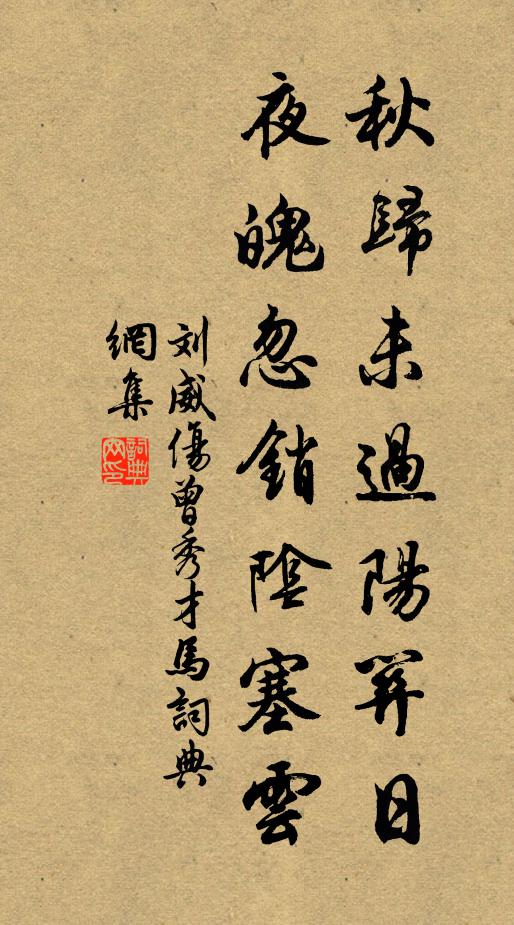 秋歸未過陽關日
夜魄忽銷陰塞雲
刘威傷曾秀才馬詞典
網集
詞典网印